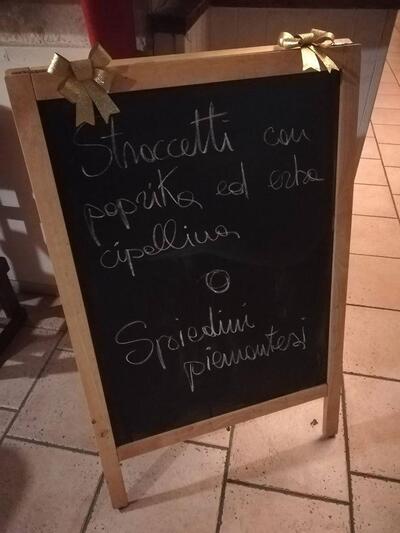 Straccetti con
paprika ed erba
cipollina
O
Spiedini
piemontesi